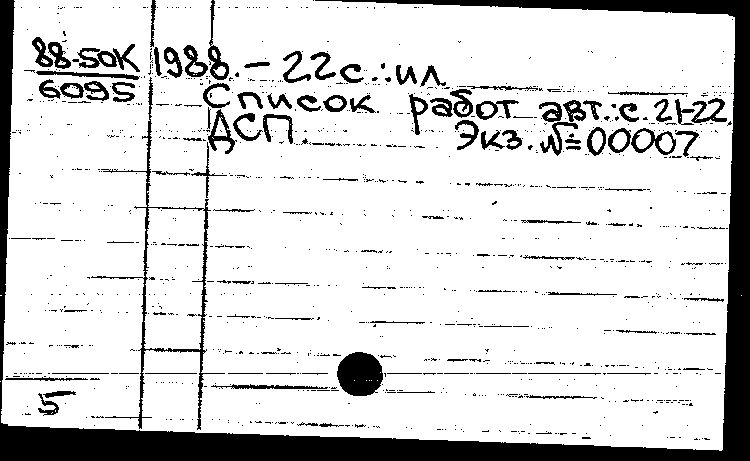 88-50К 1988. – 22с.:ил
6095 Список работ авт.:с. 21-22.
ДСП. Экз. №00007
5